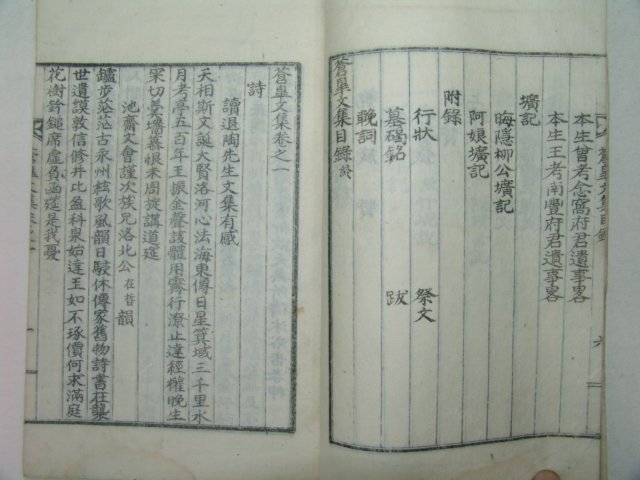 本生曾考念窩府君遺事畧
本生王考南豐府君遺事畧
壙記
晦隱柳公壙記
阿娘壙記
附錄
行狀 祭文
墓碣銘 跋
輓詞
蒼臯文集目錄終
蒼臯文集卷之一
詩
讀退陶先生文集有感
天相斯文誕大賢洛河心法海東傳日星箕域三千里水
月考亭五百年玉振金聲該體用齋行潦止達經權晩生
采切羹墻慕恨未周旋講道筵
池齋文會謹次族兄洛北公在哲韻
鑪步菾菾古永州絃歌風韻日駸休傳家舊物詩書在襲
世遺謨敦信修井比盈科泉始達玉如不琢價何求滿庭
花樹鈴鎚席虛負函筵是我憂